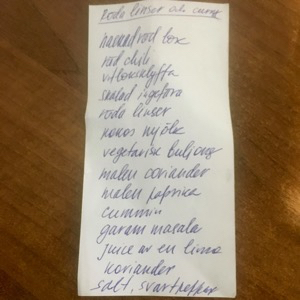 Röda linser och curry
hackad röd lök
röd chili
vitlöksklyfta
skalad ingefära
röda linser
kokos mjölk
vegetarisk buljong
malen coriander
malen paprika
cummin
garam masala
juice av en lime
koriander
salt, svartpeppar